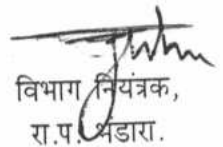 विभाग नियंत्रक,
रा.प. भंडारा.